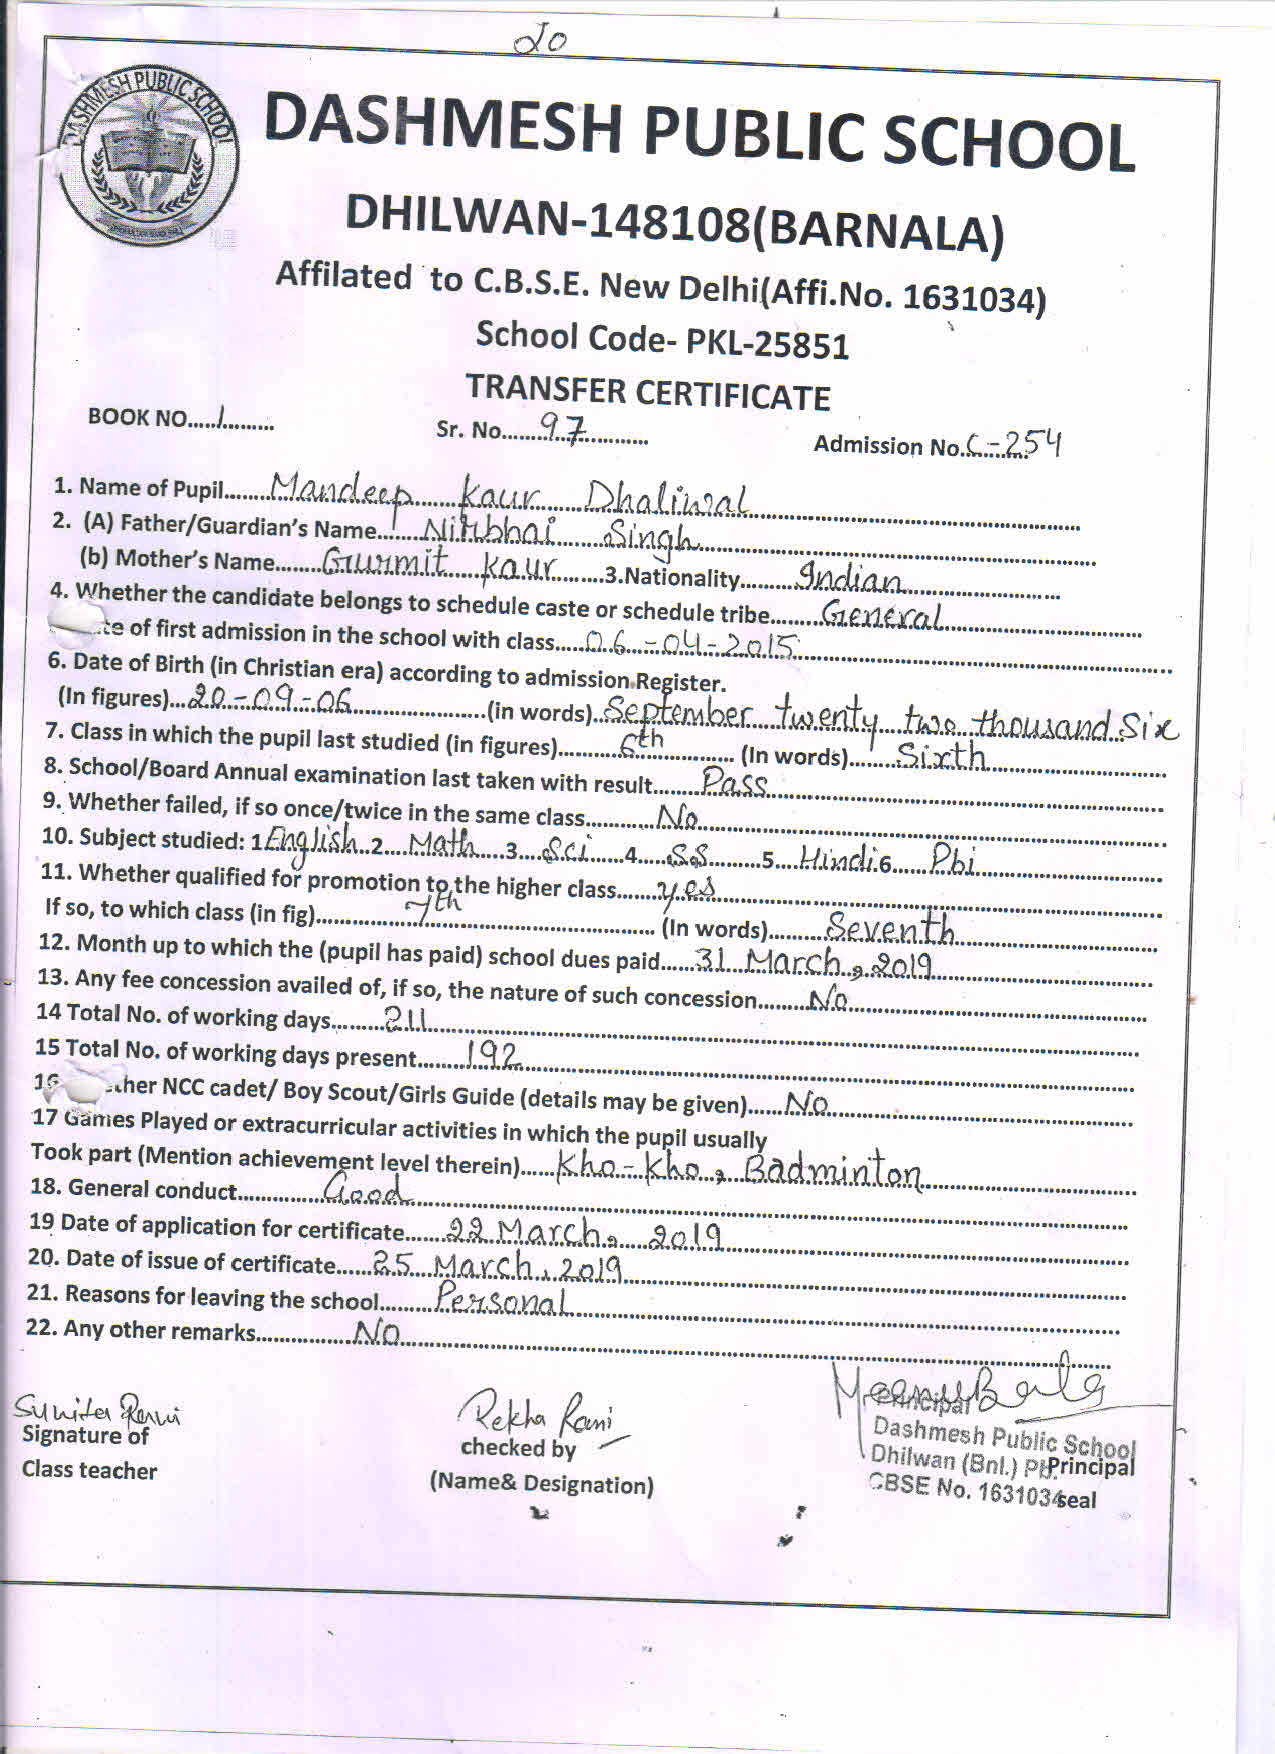 20
DASHMESH PUBLIC SCHOOL
DASHMESH PUBLIC SCHOOL
DHILWAN-148108(BARNALA)
Affilated to C.B.S.E. New Delhi(Affi.No. 1631034)
School Code- PKL-25851
TRANSFER CERTIFICATE
BOOK NO.....1......... Sr. No.......97........... Admission No.C-254
1. Name of Pupil........Mandeep Kaur Dhaliwal
2. (A) Father/Guardian's Name.......Nirbhai Singh
(b) Mother's Name.......Gurmit Kaur.........3.Nationality.........Indian
4. Whether the candidate belongs to schedule caste or schedule tribe........General
te of first admission in the school with class.....06-04-2015
6. Date of Birth (in Christian era) according to admission Register.
(In figures)...20-09-06......................(in words)..September twenty two thousand Six
7. Class in which the pupil last studied (in figures)..........6th............... (In words)........Sixth
8. School/Board Annual examination last taken with result........Pass
9. Whether failed, if so once/twice in the same class............No
10. Subject studied: 1English..2....Math....3....Sci......4.....SS.........5....Hindi.6......Pbi
11. Whether qualified for promotion to the higher class.......yes
If so, to which class (in fig)................7th................................. (In words).........Seventh
12. Month up to which the (pupil has paid) school dues paid......31 March, 2019
13. Any fee concession availed of, if so, the nature of such concession.........No
14 Total No. of working days.........211
15 Total No. of working days present........192
16 her NCC cadet/ Boy Scout/Girls Guide (details may be given)......No
17 Games Played or extracurricular activities in which the pupil usually
Took part (Mention achievement level therein)......Kho-Kho, Badminton
18. General conduct...............Good
19 Date of application for certificate.......22 March, 2019
20. Date of issue of certificate......25 March, 2019
21. Reasons for leaving the school.........Personal
22. Any other remarks.................No
Sunita Rani
Signature of
Class teacher
Rekha Rani
checked by
(Name& Designation)
Principal
Dashmesh Public School
Dhilwan (Bnl.) Pb.
CBSE No. 1631034
Principal
seal